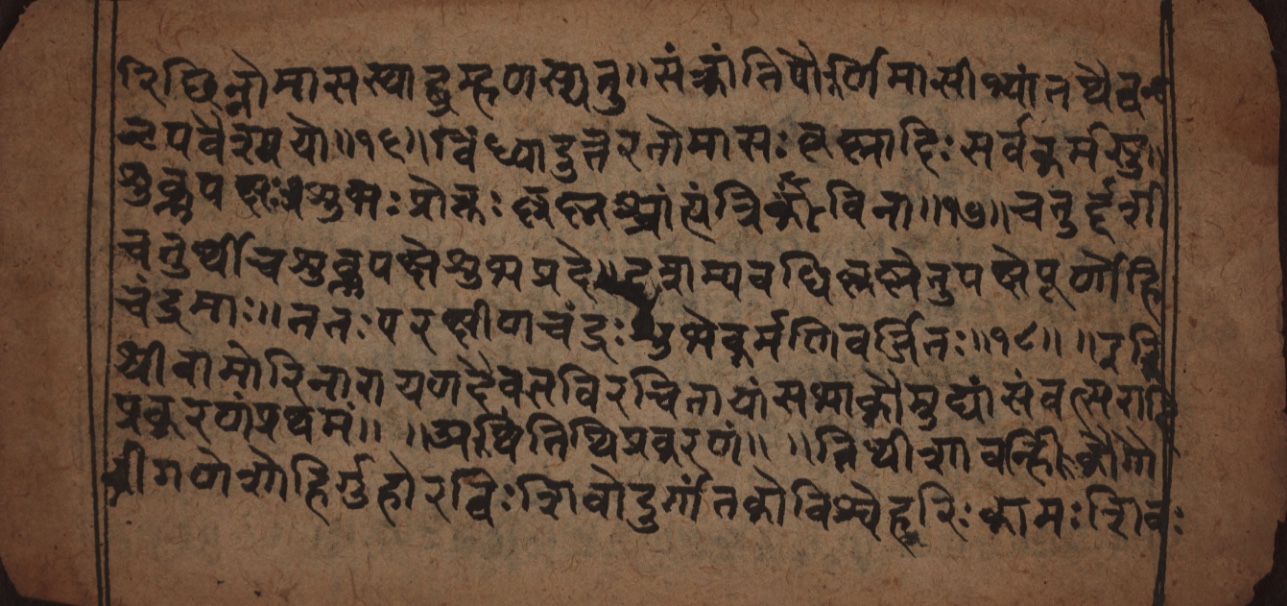 रिछिन्नो मासस्याद्ब्रह्मणस्य तु ॥ संक्रांति पौर्णिमासीभ्यां तथैव नृ
लेपवैश्ययो ॥१६॥ विंध्यादुत्तरतो मासः कृष्णादिः सर्वकर्मसु ॥
शुक्लपक्षः शुभः प्रोक्तः कृष्णश्चांत्यंत्रिकं विना ॥१७॥ चतुर्दशी
चतुर्थी च शुक्लपक्षे शुभप्रदे ॥ दशम्यवधि कृष्णे तु पक्षे पूर्णो हि
चंद्रमाः ॥ ततः परक्षीणचंद्रः शुभे कर्मणि वर्जितः ॥१८॥ ॥ इति
श्री दामोरिनारायणदैवत विरचितायां सभाकौमुद्यां संवत्सरादि
प्रकरणं प्रथमं ॥ ॥ अथ तिथिप्रकरणं ॥ ॥ तिथीशा वन्हिकौ गौ
री गणेशोहिर्गुहो रविः शिवो दुर्गांतको विश्वे हरिः कामः शिवः